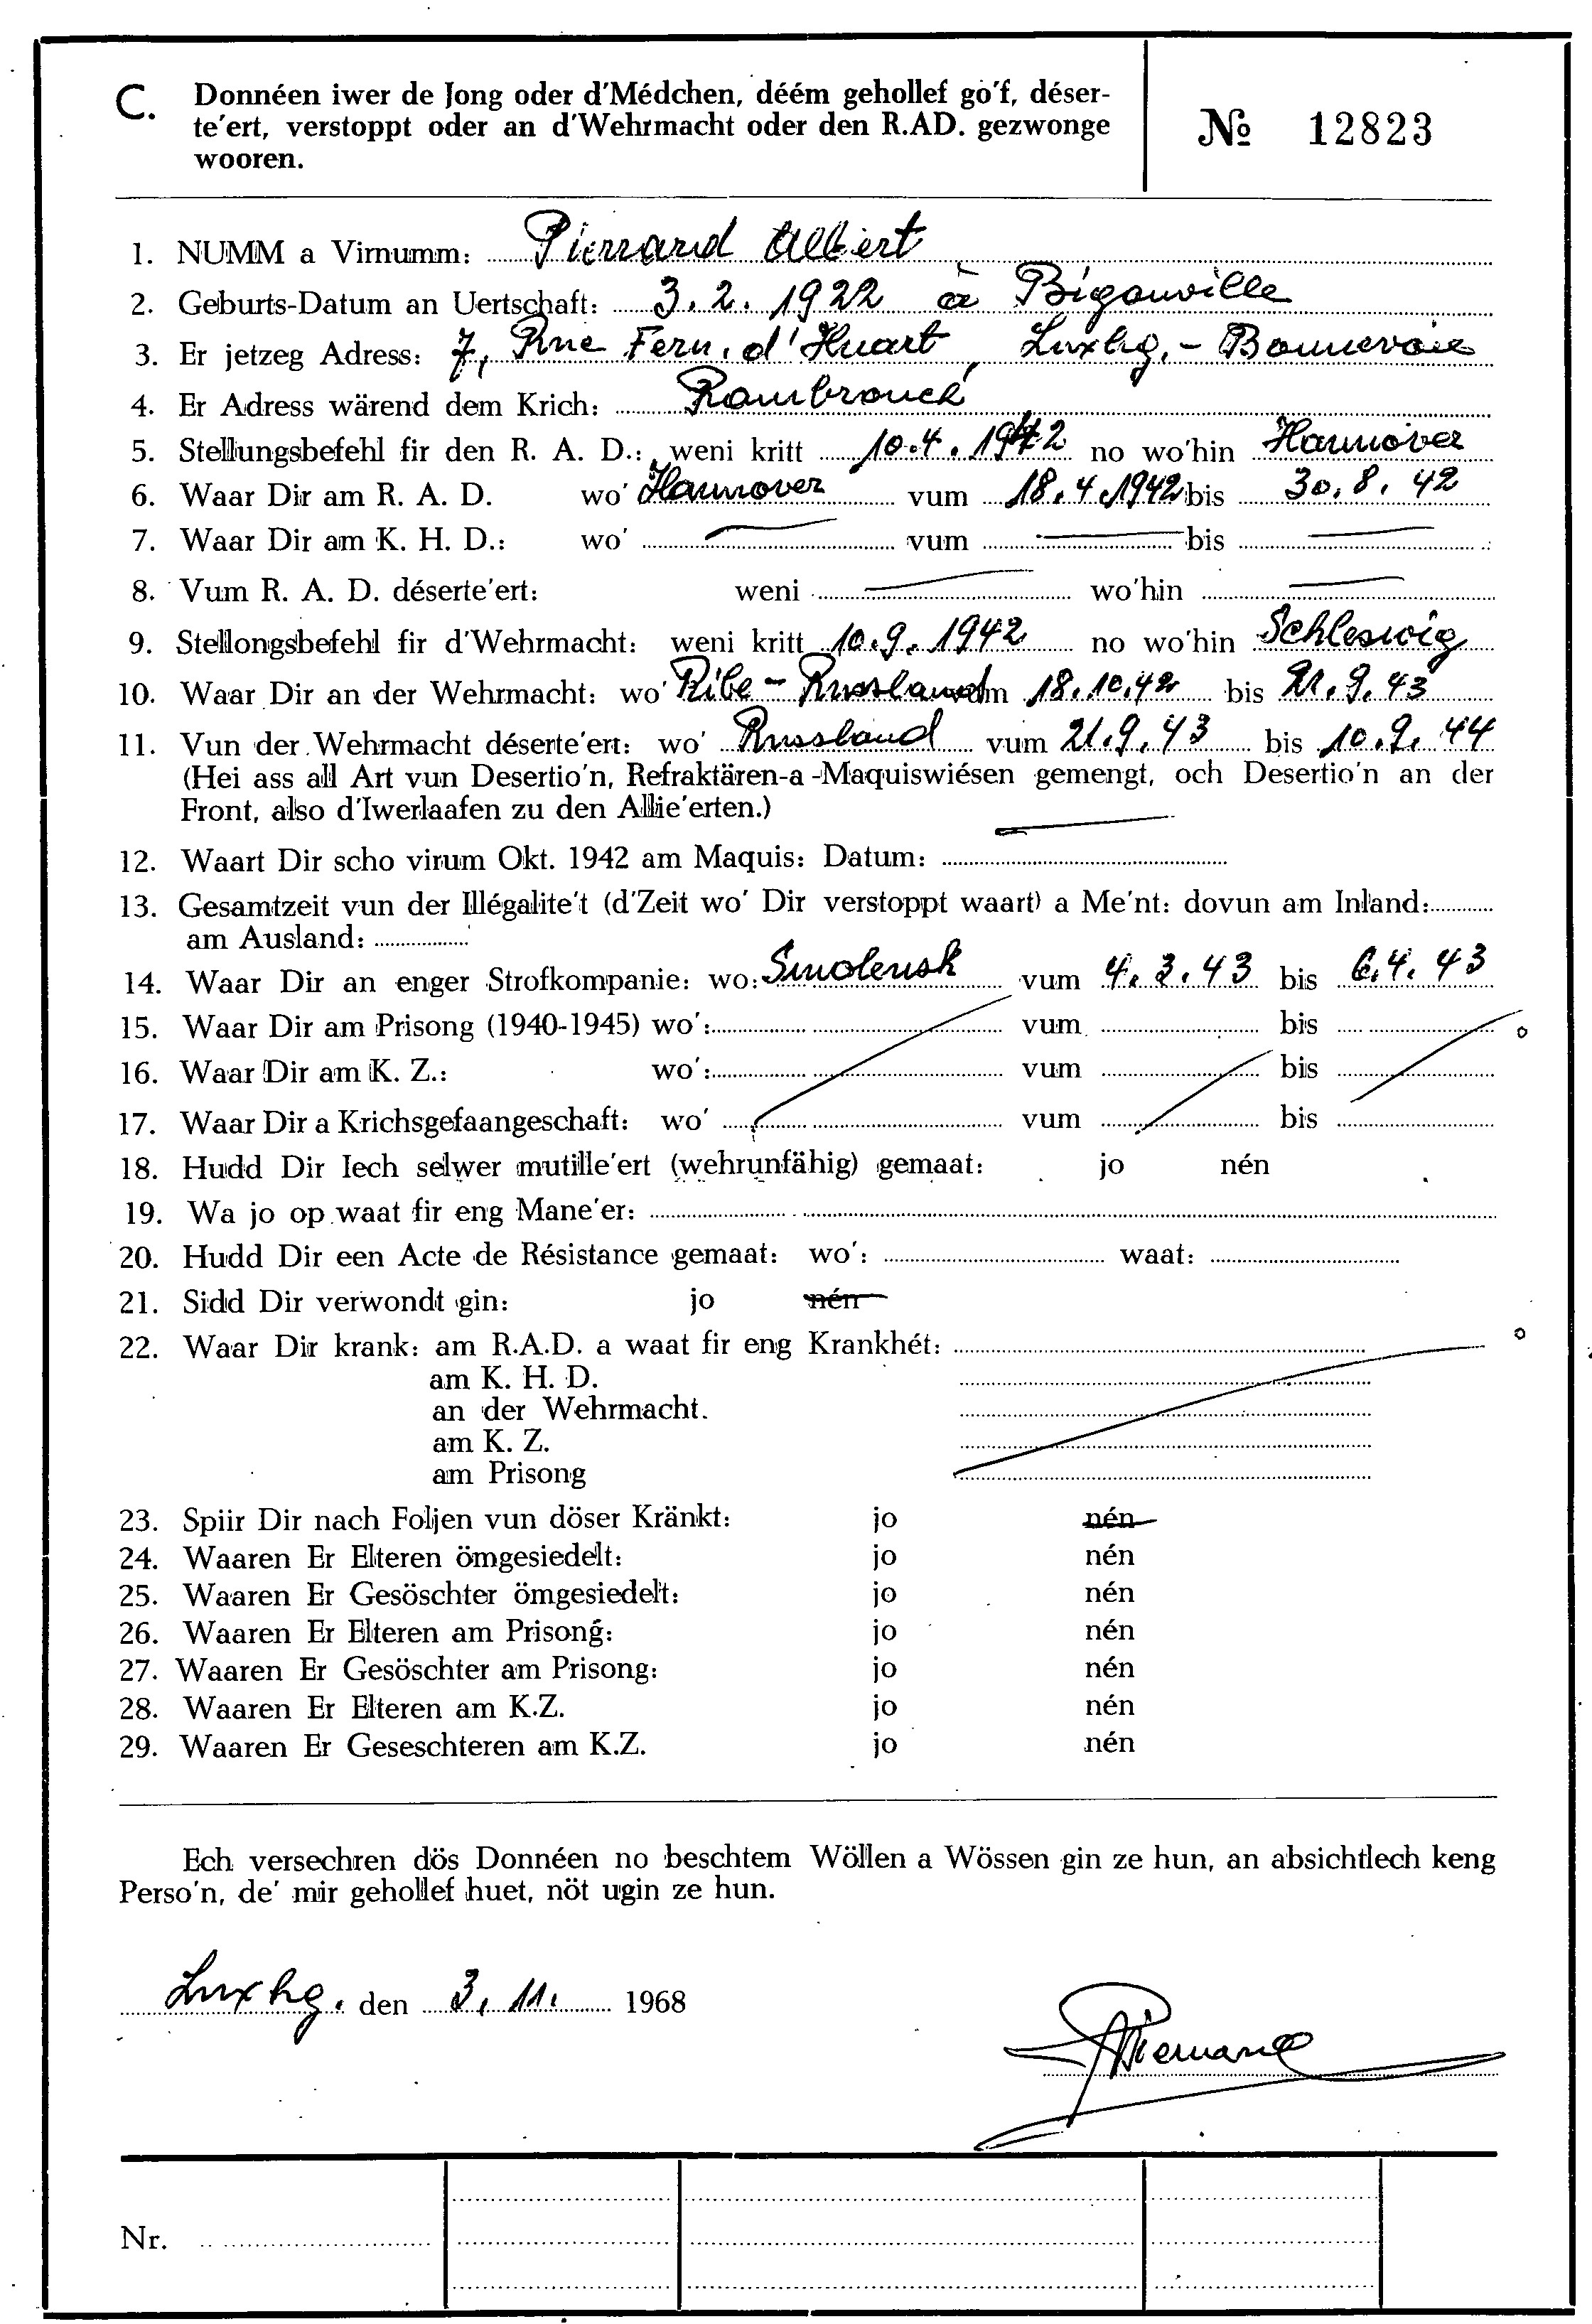 C. Donnéen iwer de Jong oder d'Médchen, déém gehollef go'f, déser-
te'ert, verstoppt oder an d'Wehrmacht oder den R.AD. gezwonge
wooren.
№ 12823
1. NUMM a Virnumm: Pierrard Albert
2. Geburts-Datum an Uertschaft: 3.2.1922 à Bigonville
3. Er jetzeg Adress: 7, Rue Fern. d'Huart, Luxbg.-Bonnevoie
4. Er Adress wärend dem Krich: Rambrouch
5. Stellungsbefehl fir den R. A. D.: weni kritt 10.4.1942 no wo'hin Hannover
6. Waar Dir am R. A. D. wo' Hannover vum 18.4.1942 bis 30.8.42
7. Waar Dir am K. H. D.: wo' vum bis
8. Vum R. A. D. déserte'ert: weni wo'hin
9. Stellongsbefehl fir d'Wehrmacht: weni kritt 10.9.1942 no wo'hin Schleswig
10. Waar Dir an der Wehrmacht: wo' Ribe - Russland vum 18.10.42 bis 21.9.43
11. Vun der Wehrmacht déserte'ert: wo' Russland vum 21.9.43 bis 10.9.44
(Hei ass all Art vun Desertio'n, Refraktären-a-Maquiswiésen gemengt, och Desertio'n an der
Front, also d'Iwerlaafen zu den Allie'erten.)
12. Waart Dir scho virum Okt. 1942 am Maquis: Datum:
13. Gesamtzeit vun der Illégalite't (d'Zeit wo' Dir verstoppt waart) a Me'nt: dovun am Inland:
am Ausland:
14. Waar Dir an enger Strofkompanie: wo: Smolensk vum 4.3.43 bis 6.4.43
15. Waar Dir am Prisong (1940-1945) wo': vum bis
16. Waar Dir am K. Z.: wo': vum bis
17. Waar Dir a Krichsgefaangeschaft: wo' vum bis
18. Hudd Dir Iech selwer mutille'ert (wehrunfähig) gemaat: jo nén
19. Wa jo op waat fir eng Mane'er:
20. Hudd Dir een Acte de Résistance gemaat: wo': waat:
21. Sidd Dir verwondt gin: jo nén
22. Waar Dir krank: am R.A.D. a waat fir eng Krankhét:
am K. H. D.
an der Wehrmacht.
am K. Z.
am Prisong
23. Spiir Dir nach Foljen vun döser Kränkt: jo nén
24. Waaren Er Elteren ömgesiedelt: jo nén
25. Waaren Er Gesöschter ömgesiedelt: jo nén
26. Waaren Er Elteren am Prisong: jo nén
27. Waaren Er Gesöschter am Prisong: jo nén
28. Waaren Er Elteren am K.Z. jo nén
29. Waaren Er Geseschteren am K.Z. jo nén
Ech versechren dös Donnéen no beschtem Wöllen a Wössen gin ze hun, an absichtlech keng
Perso'n, de' mir gehollef huet, nöt ugin ze hun.
Luxbg. den 3.11. 1968
Pierrard
Nr.